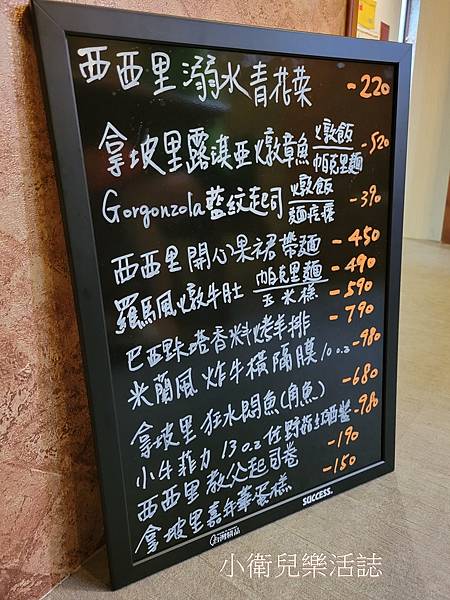 西西里溺水青花菜 -220
拿坡里露琪亞燉章魚 燉飯/帕克里麵 -520
Gorgonzola藍紋起司 燉飯/麵疙瘩 -390
西西里開心果裙帶麵 -450
羅馬風燉牛肚 帕克里麵/玉米糕 -490
-590
巴西里塔香料烤羊排 -790
米蘭風炸牛橫隔膜10 oz -980
拿坡里狂水悶魚(角魚) -680
小牛菲力13 oz佐野菇紅酒醬 -980
西西里教父起司卷 -190
拿坡里嘉年華蛋糕 -150
SUCCESS
小衛兒樂活誌